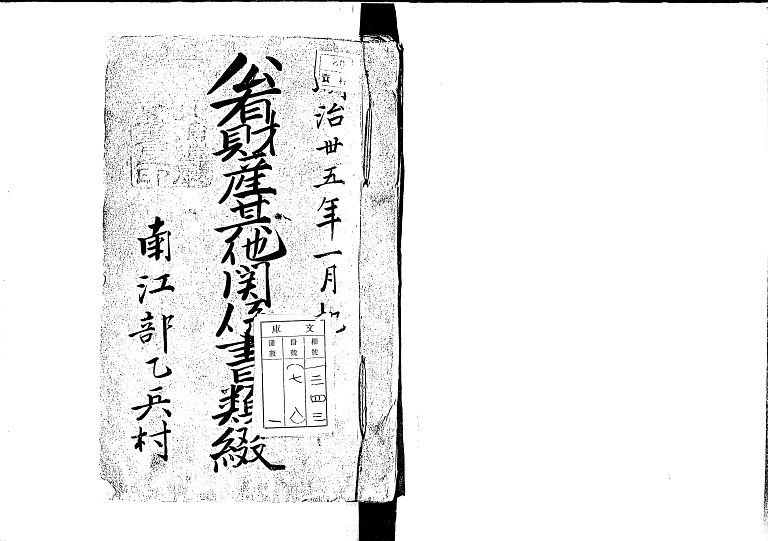 明治卅五年一月起
公有財産其他関係書類綴
南江部乙兵村
文庫
一三四三
(七八)
一